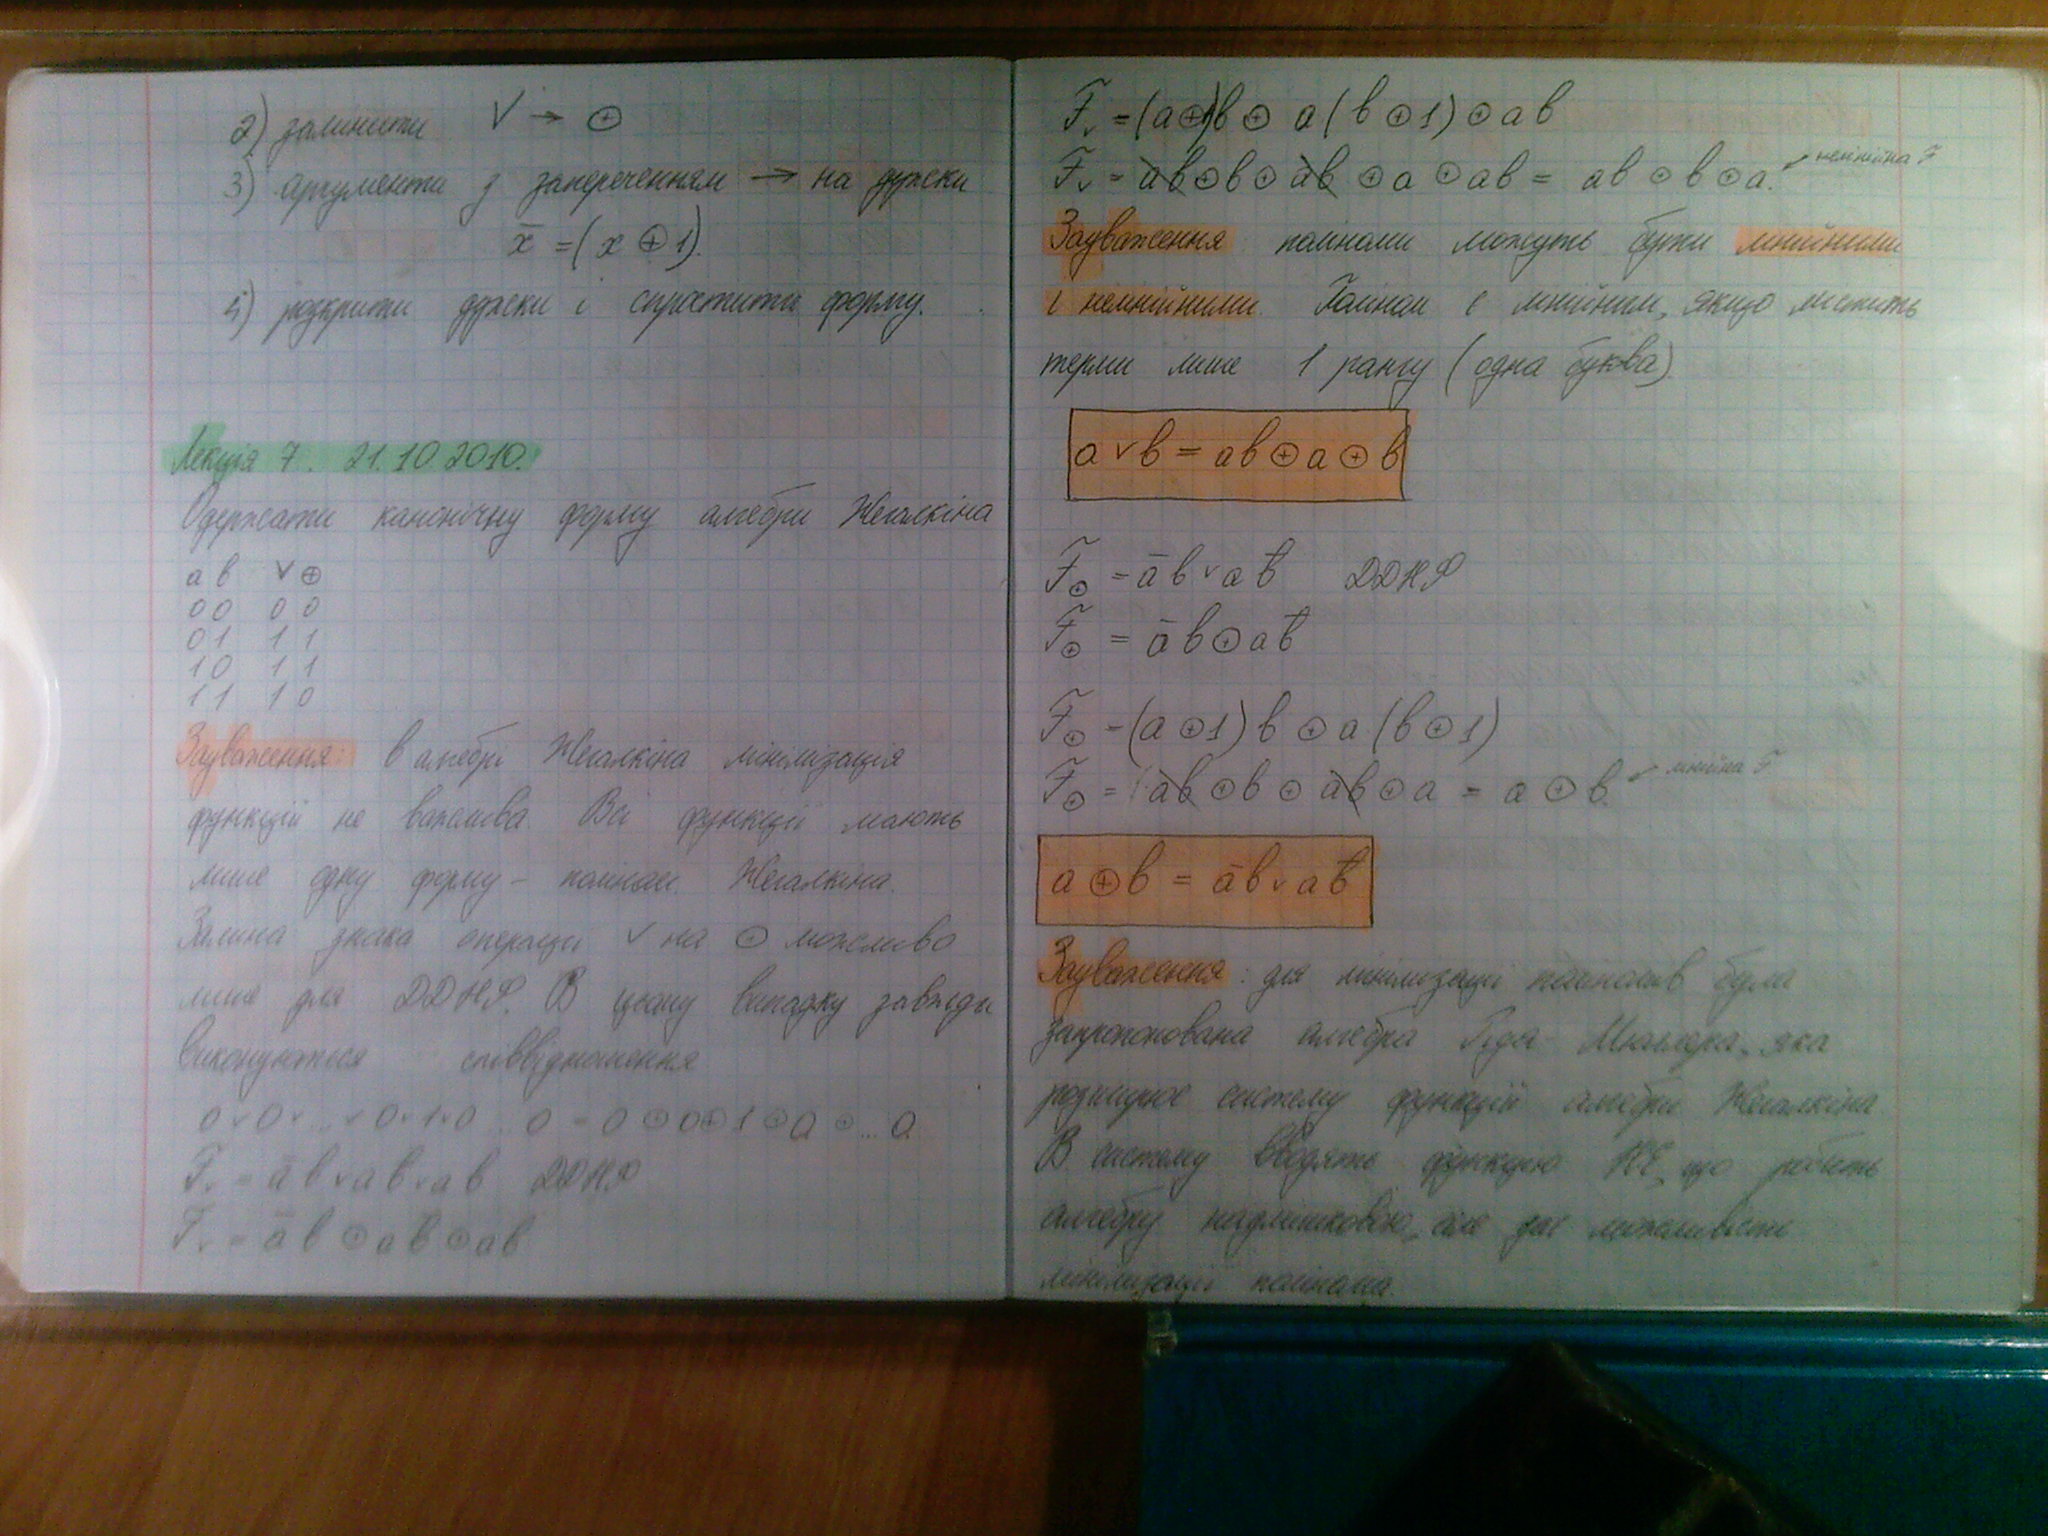 2) замінити V → ⊕
3) аргументи з запереченням → на дужки
x̄ = (x ⊕ 1).
4) розкрити дужки і спростити форму.
Лекція 7. 21.10.2010.
Одержати канонічну форму алгебри Жегалкіна
a b ∨ ⊕
0 0 0 0
0 1 1 1
1 0 1 1
1 1 1 0
Зауваження: в алгебрі Жегалкіна мінімізація
функцій не важлива. Всі функції мають
лише одну форму – поліном Жегалкіна.
Заміна знака операції ∨ на ⊕ можливо
лише для ДДНФ. В цьому випадку завжди
виконуються співвідношення
0 ∨ 0 ∨ ... ∨ 0 ∨ 1 ∨ 0 ... 0 = 0 ⊕ 0 ⊕ 1 ⊕ 0 ⊕ ... 0
F̃ᵥ = āb ∨ ab̄ ∨ ab ДДНФ
F̃ᵥ = āb ⊕ ab̄ ⊕ ab
F̃ᵥ = (a⊕1)b ⊕ a(b ⊕ 1) ⊕ ab
F̃ᵥ = ab ⊕ b ⊕ ab ⊕ a ⊕ ab = ab ⊕ b ⊕ a. ↙ нелінійна F
Зауваження: поліноми можуть бути лінійними
і нелінійними. Поліном є лінійним, якщо містить
терми лише 1 рангу (одна буква).
a ∨ b = ab ⊕ a ⊕ b
F̃⊕ = āb ∨ ab̄ ДДНФ
F̃⊕ = āb ⊕ ab̄
F̃⊕ = (a ⊕ 1)b ⊕ a(b ⊕ 1)
F̃⊕ = ab ⊕ b ⊕ ab ⊕ a = a ⊕ b. ↙ лінійна F
a ⊕ b = āb ∨ ab̄
Зауваження: для мінімізації поліномів була
запропонована алгебра Ріда-Мюллера, яка
розширює систему функцій алгебри Жегалкіна.
В систему вводять функцію НЕ, що робить
алгебру надлишковою, але дає можливість
мінімізації полінома.